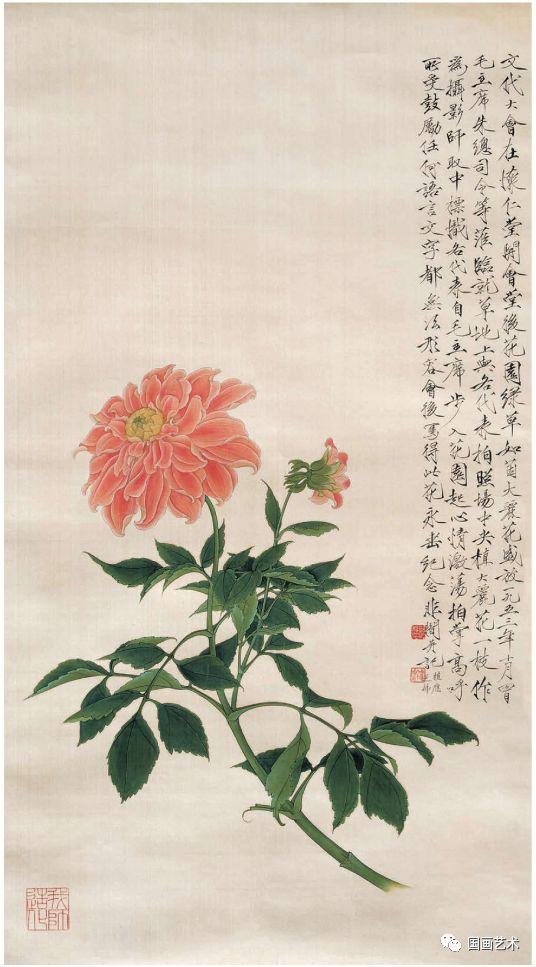 文代大會在懷仁堂開會堂後花園綠草如茵大麗花盛放一九五三年十月
毛主席朱總司令等蒞臨就草地上與各代表拍照場中央植大麗花一枝作
為攝影師取中標幟各代表自毛主席步入花園起心情激蕩拍掌高呼
所受鼓勵任何語言文字都無法形容會後寫得此花永世紀念 非闇并記
我師造化
国画艺术